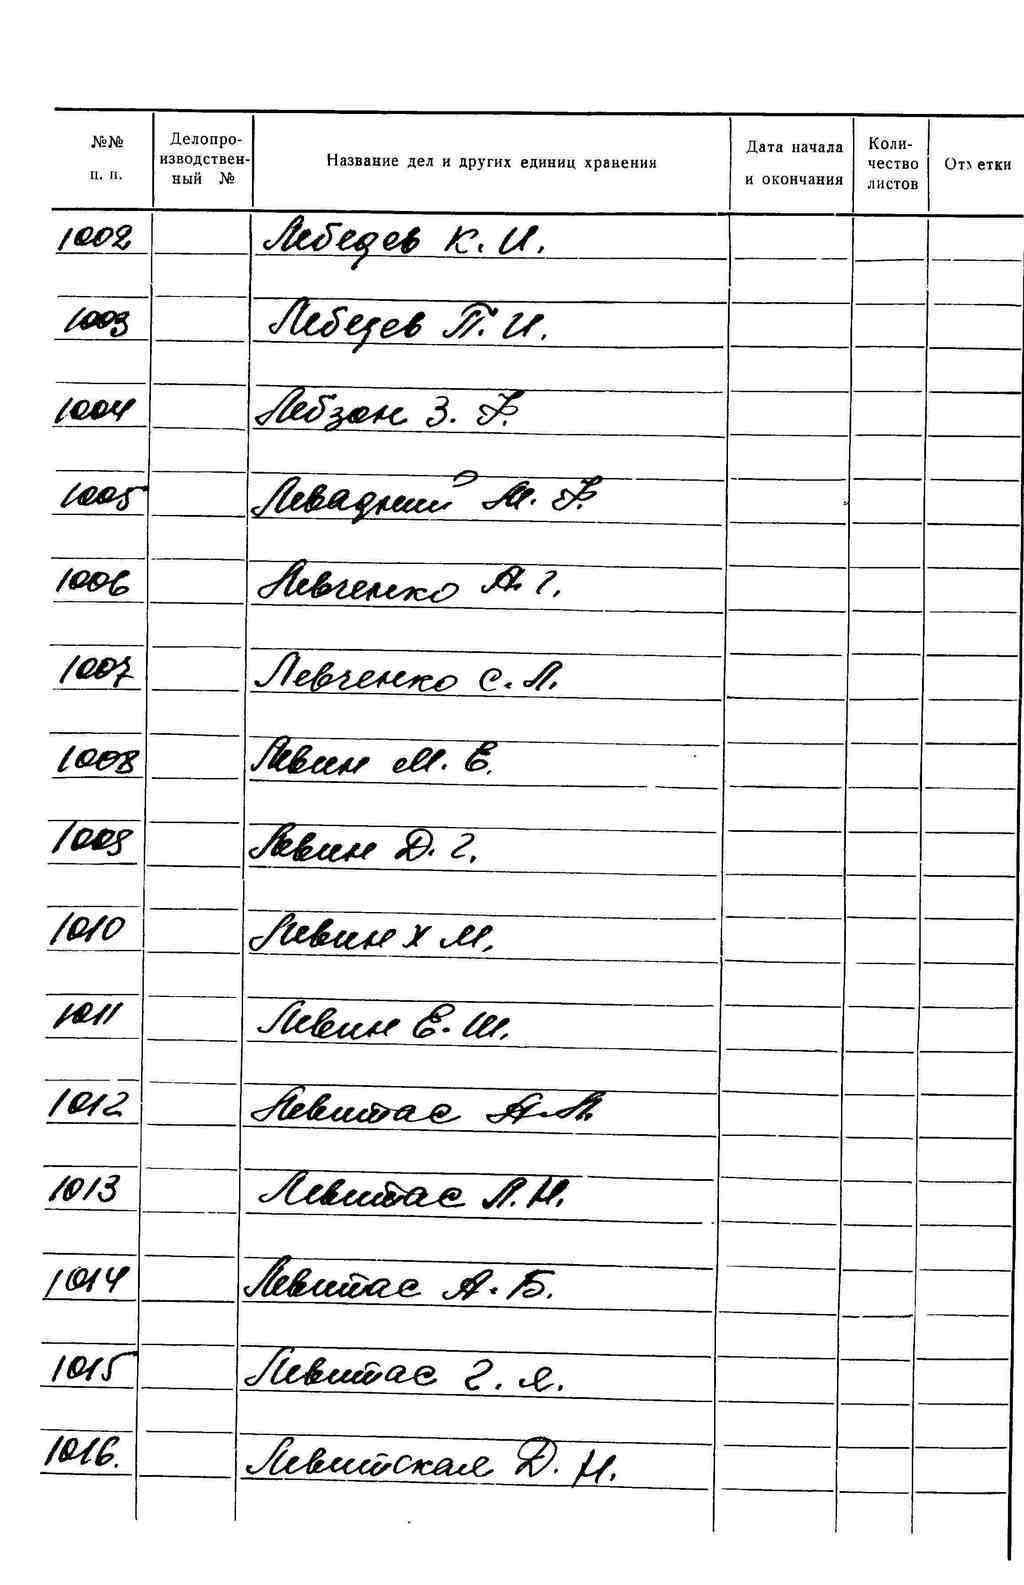 №№ п. п. Делопроизводственный № Название дел и других единиц хранения Дата начала и окончания Количество листов Отметки
1002 Лебедев К. И.
1003 Лебедев П. И.
1004 Лебзон З. Ф.
1005 Левадний М. Ф.
1006 Левченко А. Г.
1007 Левченко С. Л.
1008 Левин М. Е.
1009 Левин Д. Г.
1010 Левин Х М.
1011 Левин Е. Ш.
1012 Левитас
1013 Левитас Л. Н.
1014 Левитас А. Б.
1015 Левитас Г. Я.
1016. Левитская Д. Н.